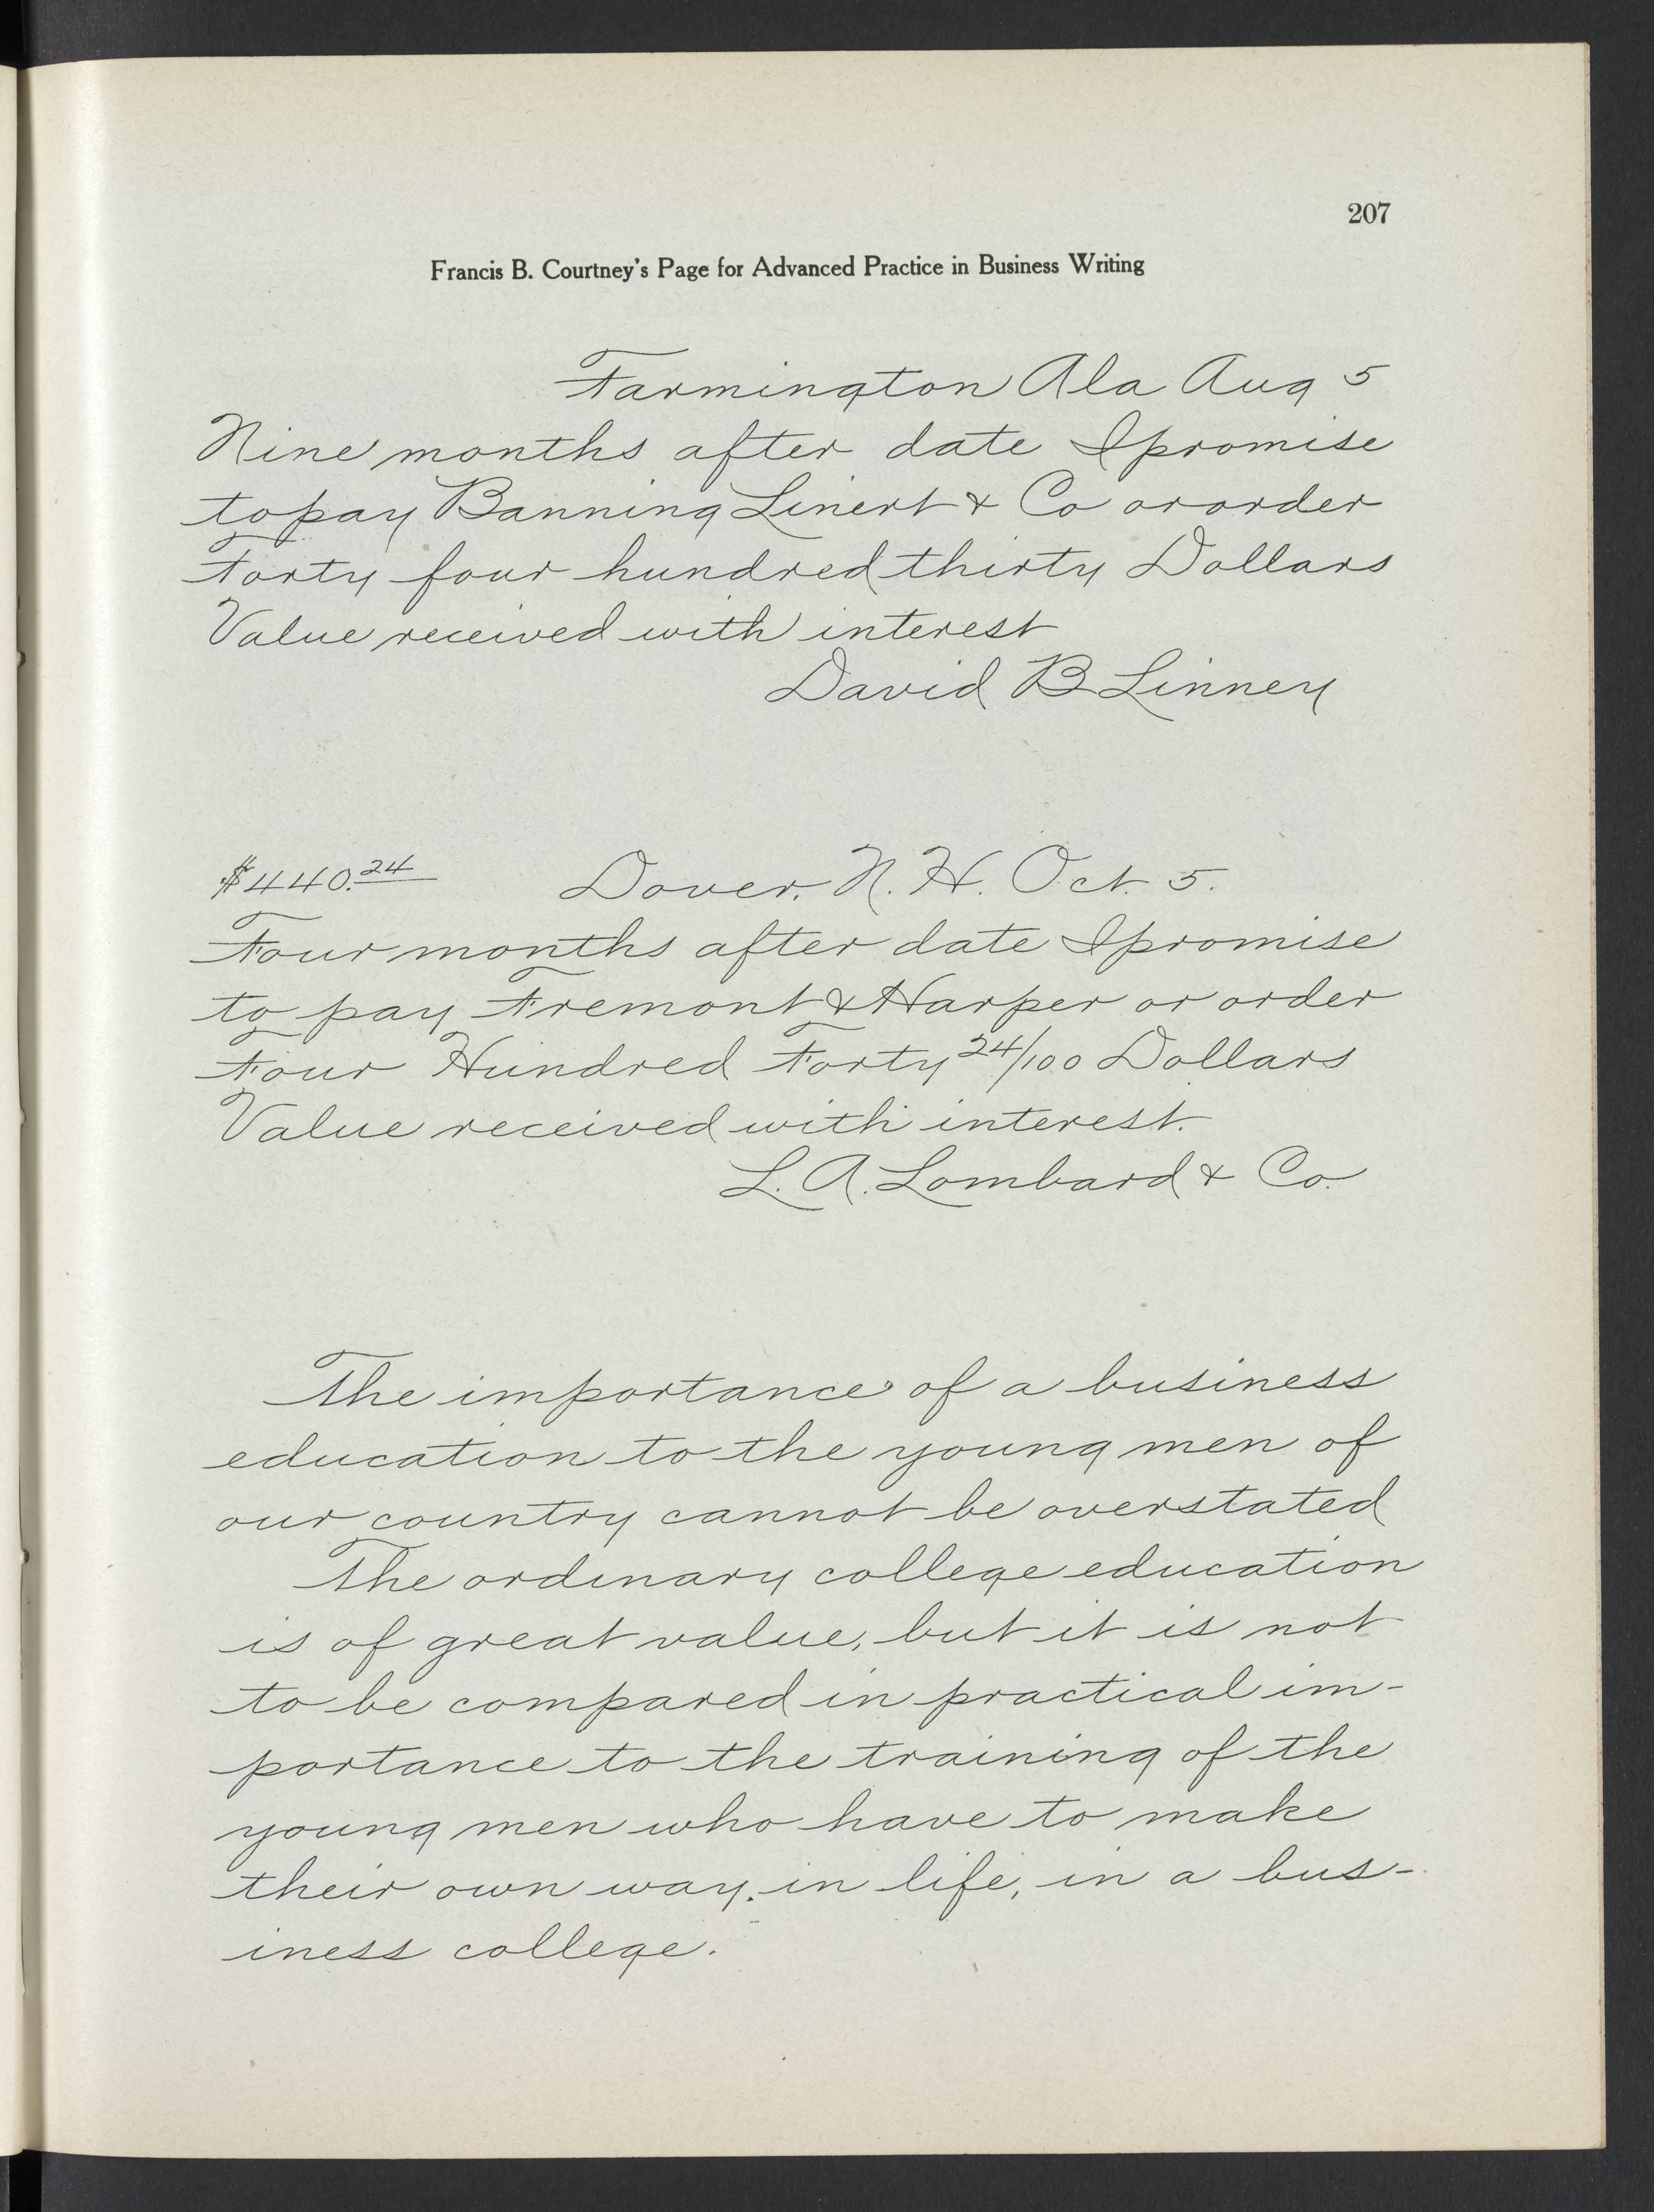 207
Francis B. Courtney's Page for Advanced Practice in Business Writing
Farmington Ala Aug 5
Nine months after date I promise
to pay Banning Linert & Co or order
Forty four hundred thirty Dollars
Value received with interest
David B Linney
$440.24 Dover, N. H. Oct. 5.
Four months after date I promise
to pay Fremont & Harper or order
Four Hundred Forty 24/100 Dollars
Value received with interest.
L. A. Lombard & Co.
The importance of a business
education to the young men of
our country cannot be overstated
The ordinary college education
is of great value, but it is not
to be compared in practical im-
portance to the training of the
young men who have to make
their own way, in life, in a bus-
iness college.